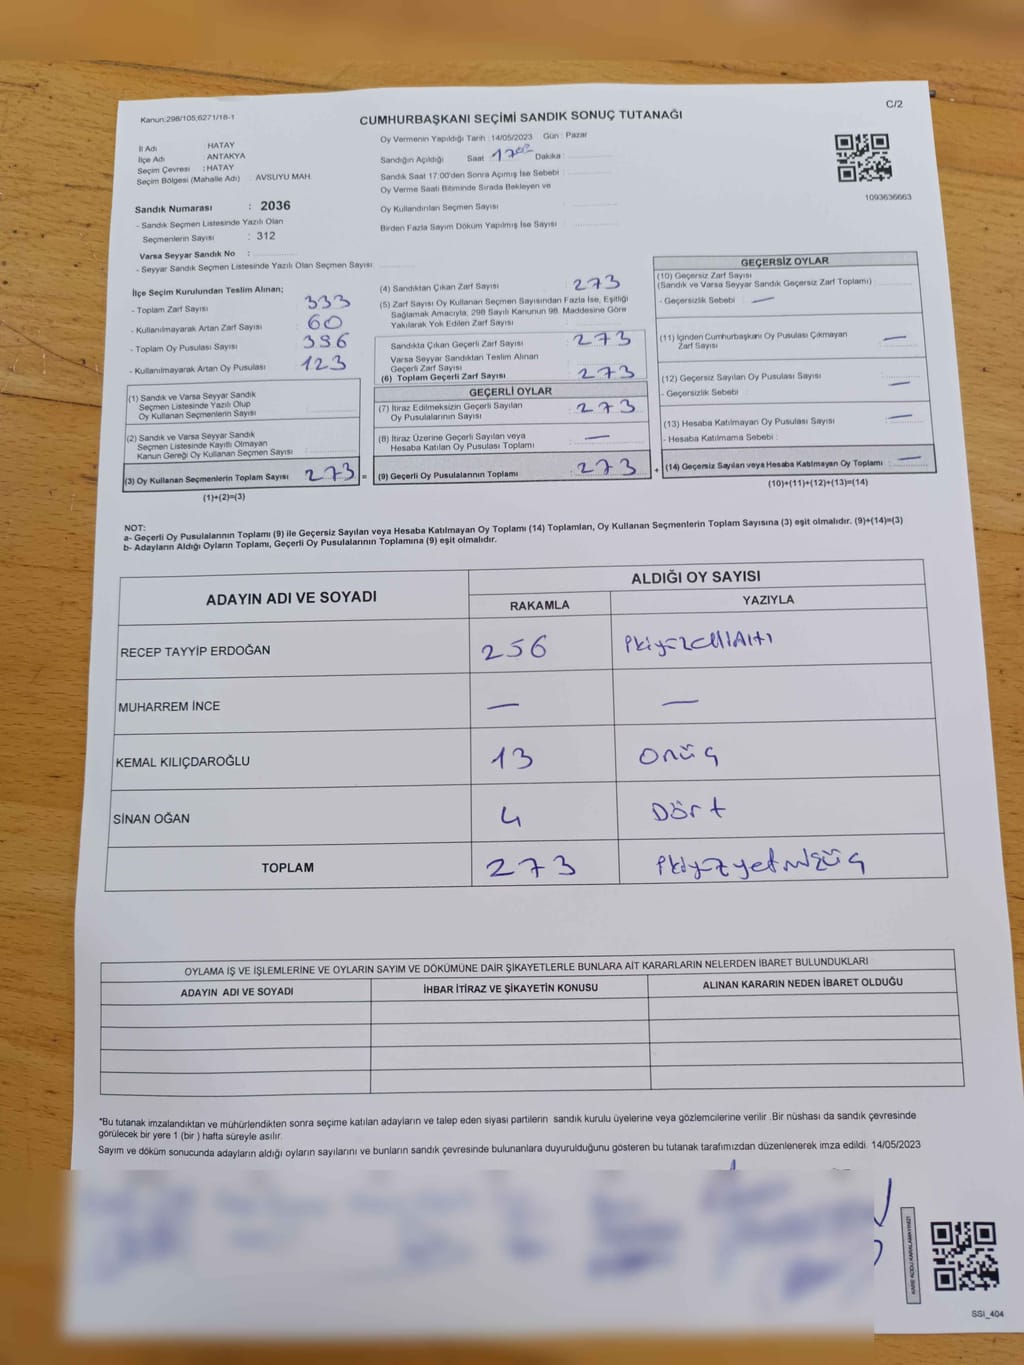 C/2
Kanun:298/105;6271/18-1
CUMHURBAŞKANI SEÇİMİ SANDIK SONUÇ TUTANAĞI
İl Adı : HATAY
İlçe Adı : ANTAKYA
Seçim Çevresi : HATAY
Seçim Bölgesi (Mahalle Adı) : AVSUYU MAH.
Oy Vermenin Yapıldığı Tarih :14/05/2023 Gün : Pazar
Sandığın Açıldığı Saat :17⁰⁰ Dakika :
Sandık Saat 17:00'den Sonra Açılmış İse Sebebi :
Oy Verme Saati Bitiminde Sırada Bekleyen ve
Oy Kullandırılan Seçmen Sayısı :
Birden Fazla Sayım Döküm Yapılmış İse Sayısı :
1093636663
Sandık Numarası : 2036
- Sandık Seçmen Listesinde Yazılı Olan
Seçmenlerin Sayısı : 312
Varsa Seyyar Sandık No :
- Seyyar Sandık Seçmen Listesinde Yazılı Olan Seçmen Sayısı:
İlçe Seçim Kurulundan Teslim Alınan;
- Toplam Zarf Sayısı : 333
- Kullanılmayarak Artan Zarf Sayısı : 60
- Toplam Oy Pusulası Sayısı : 396
- Kullanılmayarak Artan Oy Pusulası : 123
(1) Sandık ve Varsa Seyyar Sandık
Seçmen Listesinde Yazılı Olup
Oy Kullanan Seçmenlerin Sayısı :
(2) Sandık ve Varsa Seyyar Sandık
Seçmen Listesinde Kayıtlı Olmayan
Kanun Gereği Oy Kullanan Seçmen Sayısı :
(3) Oy Kullanan Seçmenlerin Toplam Sayısı : 273 =
(1)+(2)=(3)
(4) Sandıktan Çıkan Zarf Sayısı : 273
(5) Zarf Sayısı Oy Kullanan Seçmen Sayısından Fazla İse, Eşitliği
Sağlamak Amacıyla, 298 Sayılı Kanunun 98. Maddesine Göre
Yakılarak Yok Edilen Zarf Sayısı :
Sandıkta Çıkan Geçerli Zarf Sayısı : 273
Varsa Seyyar Sandıktan Teslim Alınan
Geçerli Zarf Sayısı :
(6) Toplam Geçerli Zarf Sayısı : 273
GEÇERLİ OYLAR
(7) İtiraz Edilmeksizin Geçerli Sayılan
Oy Pusulalarının Sayısı : 273
(8) İtiraz Üzerine Geçerli Sayılan veya
Hesaba Katılan Oy Pusulası Toplamı : —
(9) Geçerli Oy Pusulalarının Toplamı : 273 +
GEÇERSİZ OYLAR
(10) Geçersiz Zarf Sayısı
(Sandık ve Varsa Seyyar Sandık Geçersiz Zarf Toplamı) :
- Geçersizlik Sebebi : —
(11) İçinden Cumhurbaşkanı Oy Pusulası Çıkmayan
Zarf Sayısı : —
(12) Geçersiz Sayılan Oy Pusulası Sayısı : —
- Geçersizlik Sebebi :
(13) Hesaba Katılmayan Oy Pusulası Sayısı : —
- Hesaba Katılmama Sebebi :
(14) Geçersiz Sayılan veya Hesaba Katılmayan Oy Toplamı : —
(10)+(11)+(12)+(13)=(14)
NOT:
a- Geçerli Oy Pusulalarının Toplamı (9) ile Geçersiz Sayılan veya Hesaba Katılmayan Oy Toplamı (14) Toplamları, Oy Kullanan Seçmenlerin Toplam Sayısına (3) eşit olmalıdır. (9)+(14)=(3)
b- Adayların Aldığı Oyların Toplamı, Geçerli Oy Pusulalarının Toplamına (9) eşit olmalıdır.
ADAYIN ADI VE SOYADI
ALDIĞI OY SAYISI
RAKAMLA YAZIYLA
RECEP TAYYİP ERDOĞAN 256 İkiyüzelliAltı
MUHARREM İNCE — —
KEMAL KILIÇDAROĞLU 13 Onüç
SİNAN OĞAN 4 Dört
TOPLAM 273 İkiyüzyetmişüç
OYLAMA İŞ VE İŞLEMLERİNE VE OYLARIN SAYIM VE DÖKÜMÜNE DAİR ŞİKAYETLERLE BUNLARA AİT KARARLARIN NELERDEN İBARET BULUNDUKLARI
ADAYIN ADI VE SOYADI İHBAR İTİRAZ VE ŞİKAYETİN KONUSU ALINAN KARARIN NEDEN İBARET OLDUĞU
*Bu tutanak imzalandıktan ve mühürlendikten sonra seçime katılan adayların ve talep eden siyasi partilerin sandık kurulu üyelerine veya gözlemcilerine verilir .Bir nüshası da sandık çevresinde
görülecek bir yere 1 (bir ) hafta süreyle asılır.
Sayım ve döküm sonucunda adayların aldığı oyların sayılarını ve bunların sandık çevresinde bulunanlara duyurulduğunu gösteren bu tutanak tarafımızdan düzenlenerek imza edildi. 14/05/2023
SSI_404